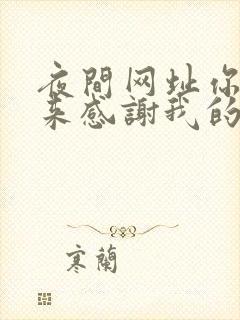 夜間网址你
来感謝我的
寒蘭